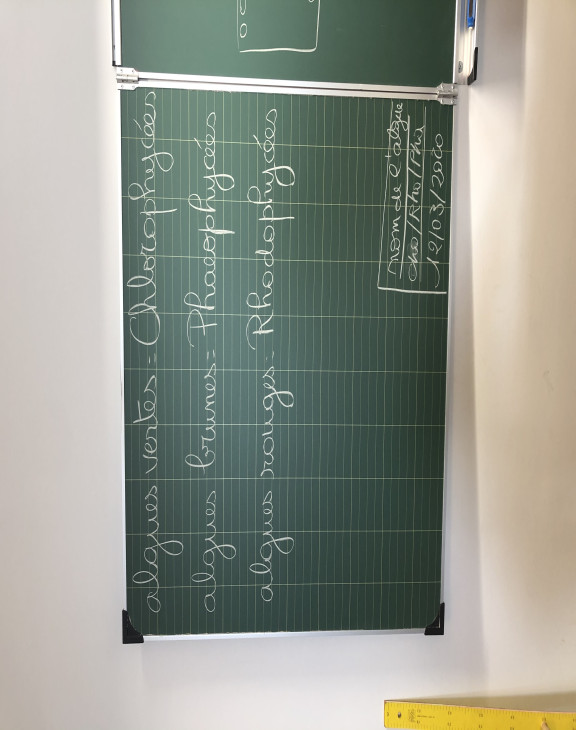 algues vertes = Chlorophycées
algues brunes = Phaeophycées
algues rouges = Rhodophycées
nom de l'algue
cho/Rho/Pha
12/03/2020